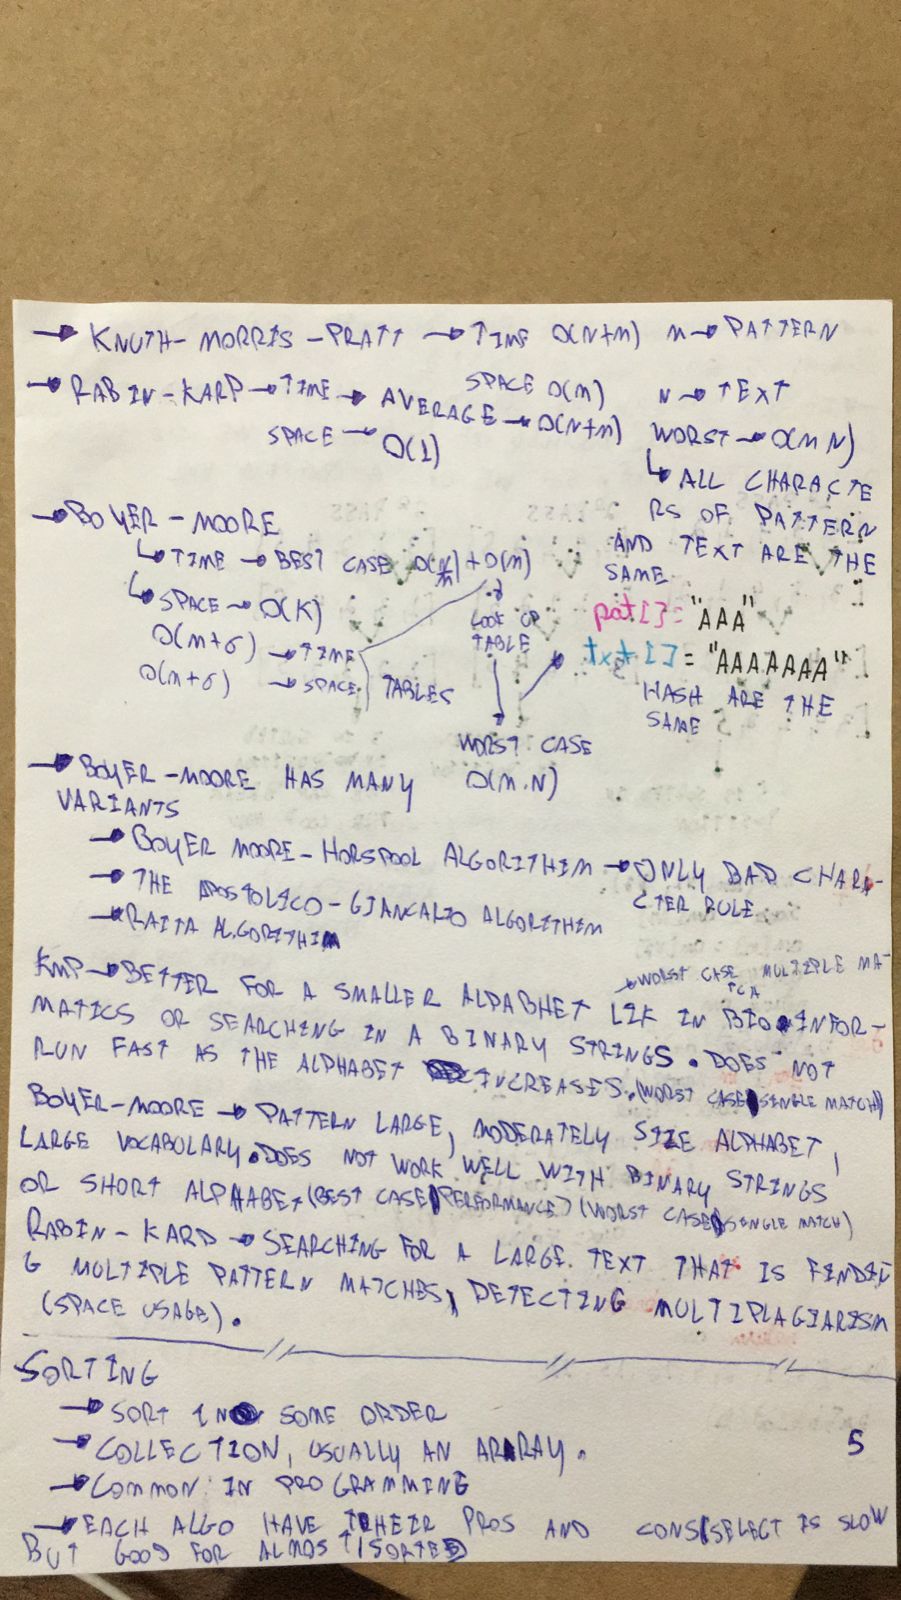 → KNUTH-MORRIS-PRATT → TIME O(N+M) M → PATTERN
SPACE O(M) N → TEXT
→ RABIN-KARP → TIME → AVERAGE → O(N+M) WORST → O(M N)
SPACE → O(1)
↳ ALL CHARACTE
RS OF PATTERN
AND TEXT ARE THE
SAME
pat[] = "AAA"
txt[] = "AAAAAAA"
HASH ARE THE
SAME
→ BOYER-MOORE
↳ TIME → BEST CASE O(N/M) + O(M)
↳ SPACE → O(K)
LOOK UP
TABLE
O(M+σ) → TIME
O(M+σ) → SPACE } TABLES
WORST CASE
O(M.N)
→ BOYER-MOORE HAS MANY
VARIANTS
→ BOYER MOORE-HORSPOOL ALGORITHIM → ONLY BAD CHARA-
CTER RULE
→ THE APOSTOLICO-GIANCARLO ALGORITHIM
→ RAITA ALGORITHIM
KMP → BETTER FOR A SMALLER ALPABHET LIK IN BIOINFOR-
→ WORST CASE MULTIPLE MA-
TCH
MATICS OR SEARCHING IN A BINARY STRINGS. DOES NOT
RUN FAST AS THE ALPHABET INCREASES. (WORST CASE SINGLE MATCH)
BOYER-MOORE → PATTERN LARGE, MODERATELY SIZE ALPHABET,
LARGE VOCABULARY. DOES NOT WORK WELL WITH BINARY STRINGS
OR SHORT ALPHABET (BEST CASE PERFORMANCE) (WORST CASE SINGLE MATCH)
RABIN-KARP → SEARCHING FOR A LARGE TEXT THAT IS FINDIN
G MULTIPLE PATTERN MATCHES, DETECTING MULTIPLAGIARISM
(SPACE USAGE).
SORTING
→ SORT IN SOME ORDER
→ COLLECTION, USUALLY AN ARRAY.
5
→ COMMON IN PROGRAMMING
→ EACH ALGO HAVE THEIR PROS AND CONS (SELECT IS SLOW
BUT GOOD FOR ALMOST SORTED